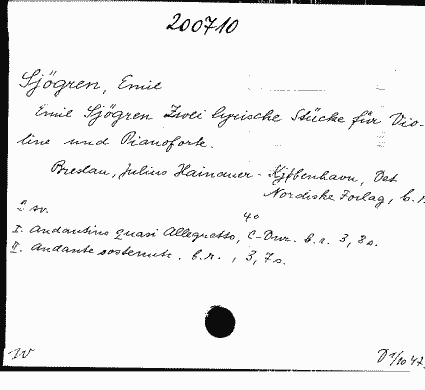 200710
Sjögren, Emil
Emil Sjögren Zwei lyrische Stücke für Vio-
line und Pianoforte.
Breslau, Julius Hainauer - Kjøbenhavn, Det
Nordiske Forlag,
2 sv. 4o
I. Andantino quasi Allegretto, C-Dur. b. r. 3, 8 s.
II. Andante sostenuto. b. r., 3, 7 s.
IV